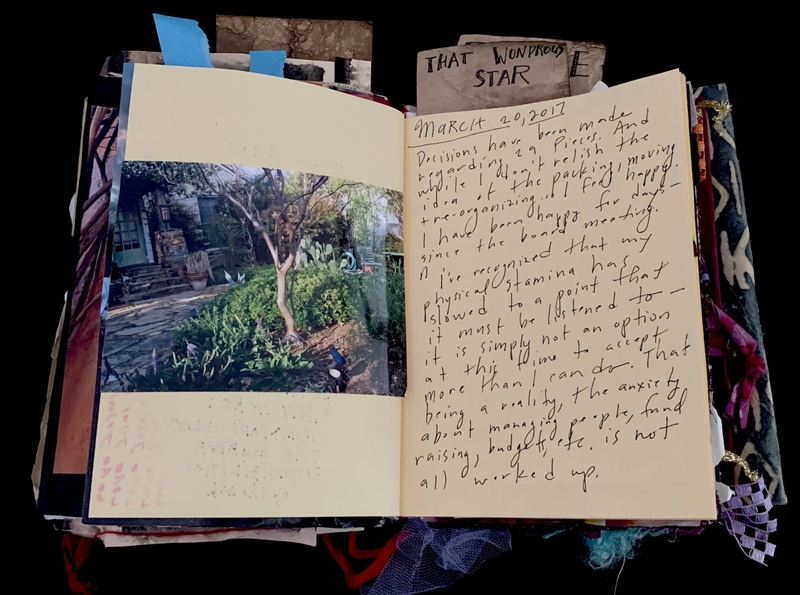 THAT WONDROUS
STAR
E
MARCH 20, 2017
Decisions have been made
regarding 29 Pieces. And
while I don't relish the
idea of the packing, moving
+ re-organizing, I feel happy.
I have been happy for days -
since the board meeting.
I've recognized that my
physical stamina has
slowed to a point that
it must be listened to -
it is simply not an option
at this time to accept
more than I can do. That
being a reality, the anxiety
about managing people, fund
raising, budgets, etc. is not
all worked up.